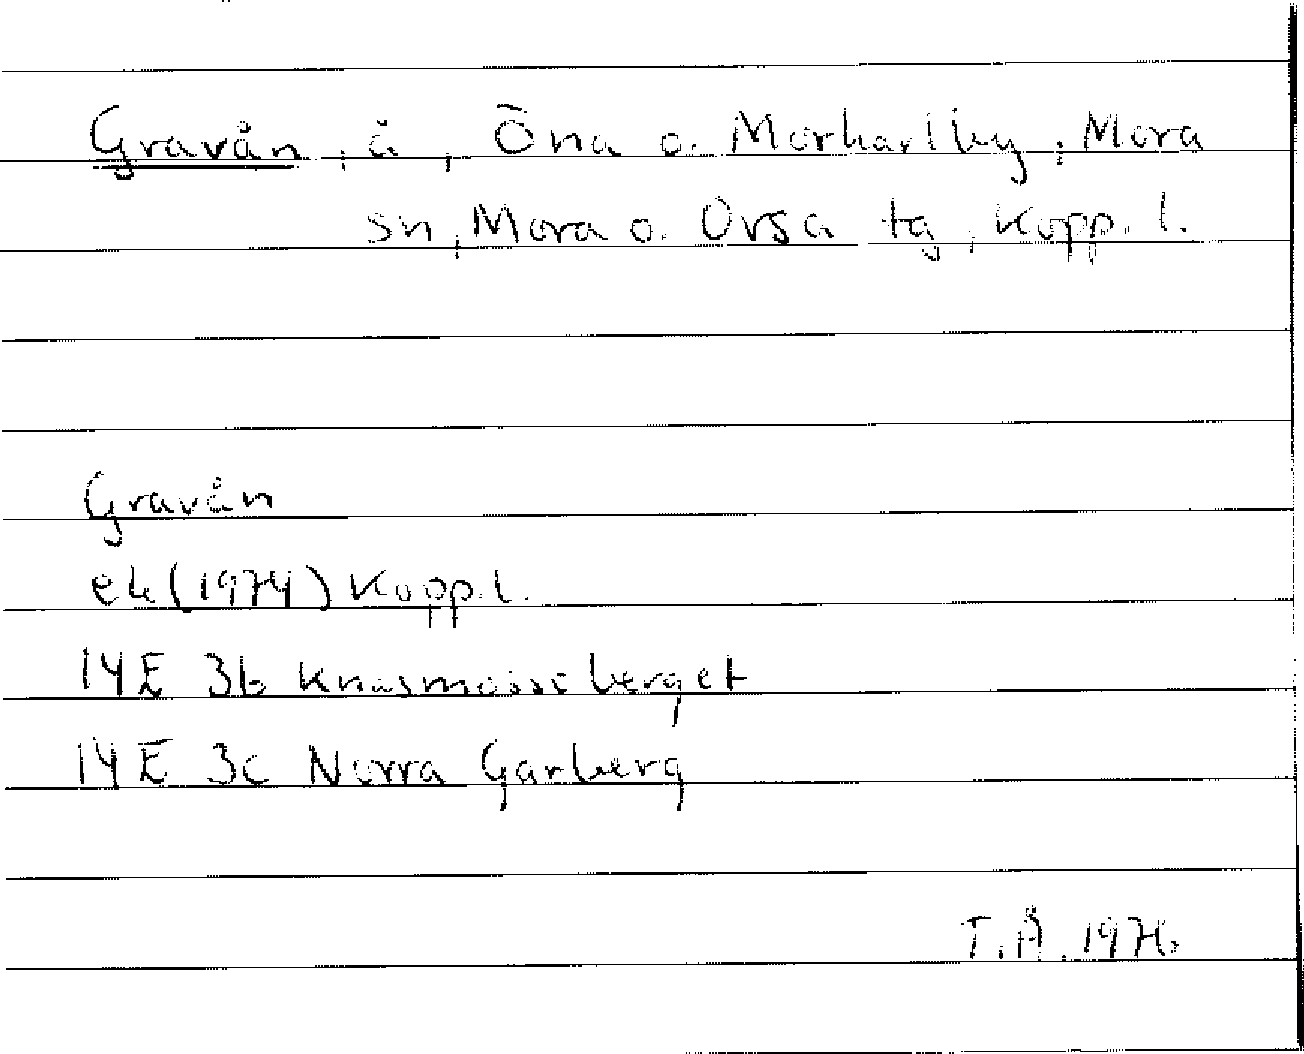 Gravån, å, Öna o. Morkarlby, Mora
sn, Mora o. Orsa tg, Kopp. l.
Gravån
ek (1974) Kopp. l.
14E 3b berget
14E 3c Norra Garberg
T.Å. 1976